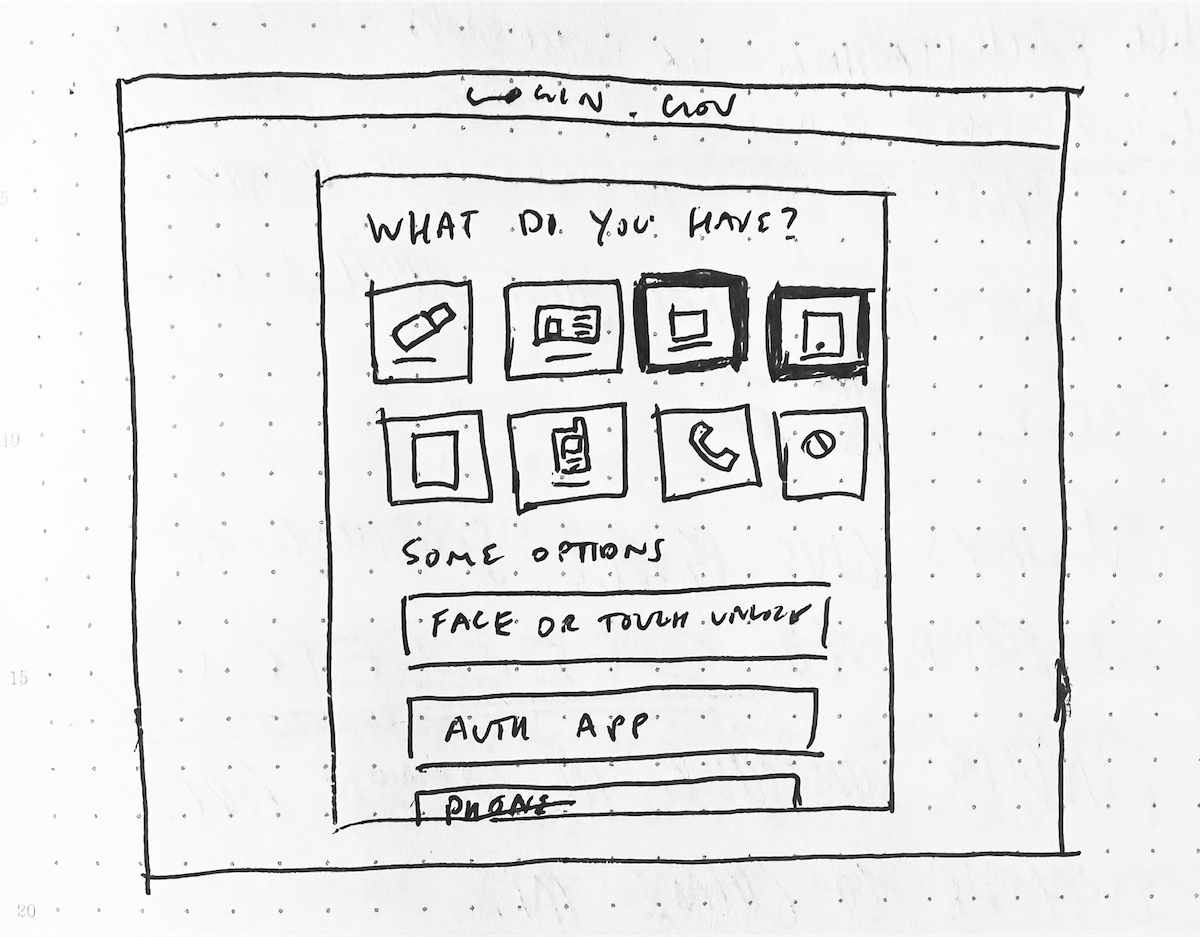 LOGIN.GOV
WHAT DO YOU HAVE?
SOME OPTIONS
FACE OR TOUCH UNLOCK
AUTH APP
PHONE
10
15
20